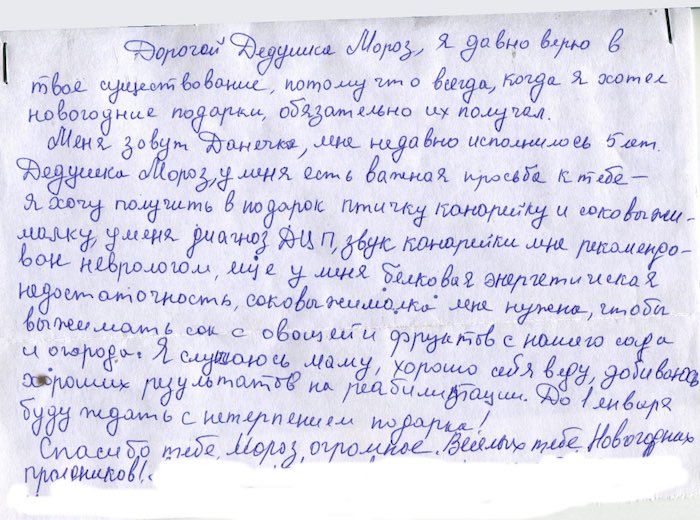 Дорогой Дедушка Мороз, я давно верю в
твое существование, потому что всегда, когда я хотел
новогодние подарки, обязательно их получал.
Меня зовут Данечка, мне недавно исполнилось 5 лет.
Дедушка Мороз, у меня есть важная просьба к тебе –
я хочу получить в подарок птичку канарейку и соковыжи-
малку, у меня диагноз ДЦП, звук канарейки мне рекомендо-
ван неврологом, ещё у меня белковая энергетическая
недостаточность, соковыжималка мне нужна, чтобы
выжимать сок с овощей и фруктов с нашего сада
и огорода. Я слушаюсь маму, хорошо себя веду, добиваюсь
хороших результатов на реабилитации. До 1 января
буду ждать с нетерпением подарка!
Спасибо тебе, Мороз, огромное. Весёлых тебе Новогодних
праздников!.